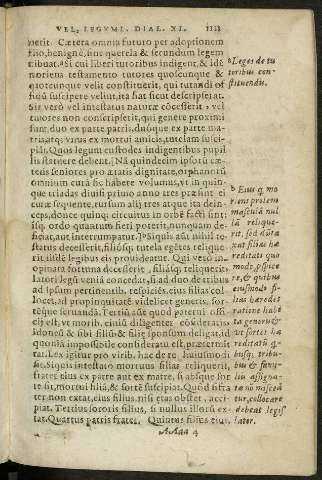 VEL, LEGVMI. DIAL. XI.
nerit. Cætera omnia futuro per adoptionem
filio, benignè, sinc querela & secundum legem
tribuat. Si cui liberi tutoribus indigent, & idē
moriens testamento tutores quoscunque &
quotcunque velit constituerit, qui tutandi of
sicū suscipere velint, rata fiat sicut descripserat.
Sin verò vel intestatus naturæ cōcesserit, vel
tutores non conscripserit, qui genere proximi
sunt, duo ex parte patris, duóque ex parte ma
tris, atq; vnus ex mortui amicis, tutelam susci-
piāt. Quos legum custodes indigentibus pupil
lis statuere debent. Nā quindecim ipsorū cæ-
teris seniores pro ætatis dignitate, orphanorū
omnium curā sic habere volumus, vt in quin-
que triadas diuisi, primo anno tres præsint ei
curæ, sequente, rursum alij tres atque ita dein-
ceps, donec quinq; circuitus in orbē facti sint;
isq; ordo quantum fieri poterit, nunquam de-
sinat,
status decesserit, filiósq; tutela egētes relique-
rit, eisdē legibus eis prouideatur. Qui verò in-
opinata fortuna decesserit, filiásq; reliquerit,
latori legis veniā concedat, si ad duo de tribus
ad ipsum pertinentib. respiciēs, eius filias col
locet, ad propinquitatē videlicet generis, sor-
téque seruandā. Tertiū aūt quod paternū offi-
cij est, vt morib. ciuiū diligenter
idoneū & sibi filiū & filiæ sponsum deligat, id
quoniā impossibile consideratu est, prætermit
tat. Lex igitur pro virib. hac de re huiusmodi
sit. Siquis intestato mortuus filias reliquerit,
frater eius ex patre aut ex matre, si absque sor
te sit, mortui filiā, & sortē suscipiat. Quod si fra
ter non extat, eius filius, nisi ętas obstet, acci-
piat. Tertius sororis filius, si nullus illorū ex-
tat. Quartus patris frater. Quintus filius eius
Leges de tu
toribus con-
stituendis.
Eius q; mo
riens prolem
masculā nul
lā relique-
rit, sed dūta
xat filias hæ
reditati quo
modo,
& quibus
eiusmodi fi-
lias hæredes
ratione habi
ta generis &
vt sortes hæ
reditatū q-
busq; tribu-
bus & fami-
lijs assigna-
tæ nō misceā
tur, collocare
debeat legis
lator.